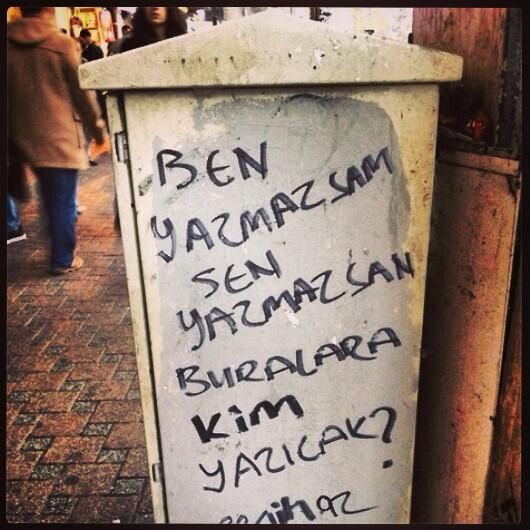 BEN
YAZMAZSAM
SEN
YAZMAZSAN
BURALARA
KiM
YAZICAK?